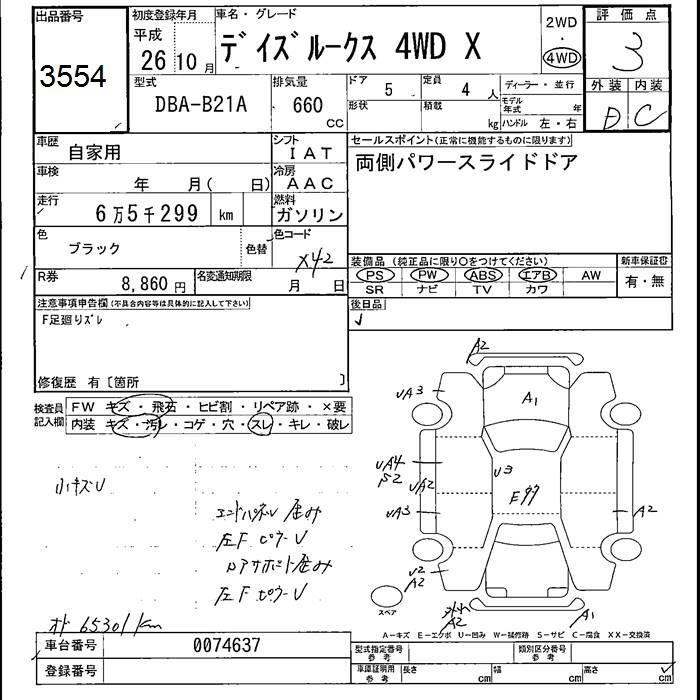 出品番号
3554
初度登録年月
平成
26 10 月
車名・グレード
デイズルークス 4WD X
2WD
・
4WD
評価点
3
外装 内装
D C
型式
DBA-B21A
排気量
660
CC
ドア
5
定員
4 人
形状
積載
kg
ディーラー・並行
モデル年式 年
ハンドル 左・右
車歴
自家用
シフト
IAT
車検
年 月( 日)
冷房
AAC
走行
6万5千299 km
燃料
ガソリン
色
ブラック
色替
色コード
X42
R券
8,860 円
名変通知期限
月 日
セールスポイント(正常に機能するものに限ります)
両側パワースライドドア
装備品 (純正品に限り○をつけてください)
PS PW ABS エアB AW
SR ナビ TV カワ
新車保証書
有・無
後日品
注意事項申告欄(不具合内容等は具体的に記入して下さい)
F足廻りズレ
修復歴 有〔箇所 〕
検査員記入欄
FW キズ・飛石・ヒビ割・リペア跡・×要
内装 キズ・汚レ・コゲ・穴・スレ・キレ・破レ
小キズU
エンドパネル 歪み
左F ピラーU
ロアサポート歪み
左F ピラーU
オド 65301km
A2
UA3
A1
UA4
S2
UA2
U3
UA3
A2
U2
A2
A2
A1
スペア
A-キズ E-エクボ U-凹み W-補修跡 S-サビ C-腐食 XX-交換済
車台番号
0074637
登録番号
型式指定番号
参考
類別区分番号
参考
車庫証明用
参考
長さ cm
幅 cm
高さ cm